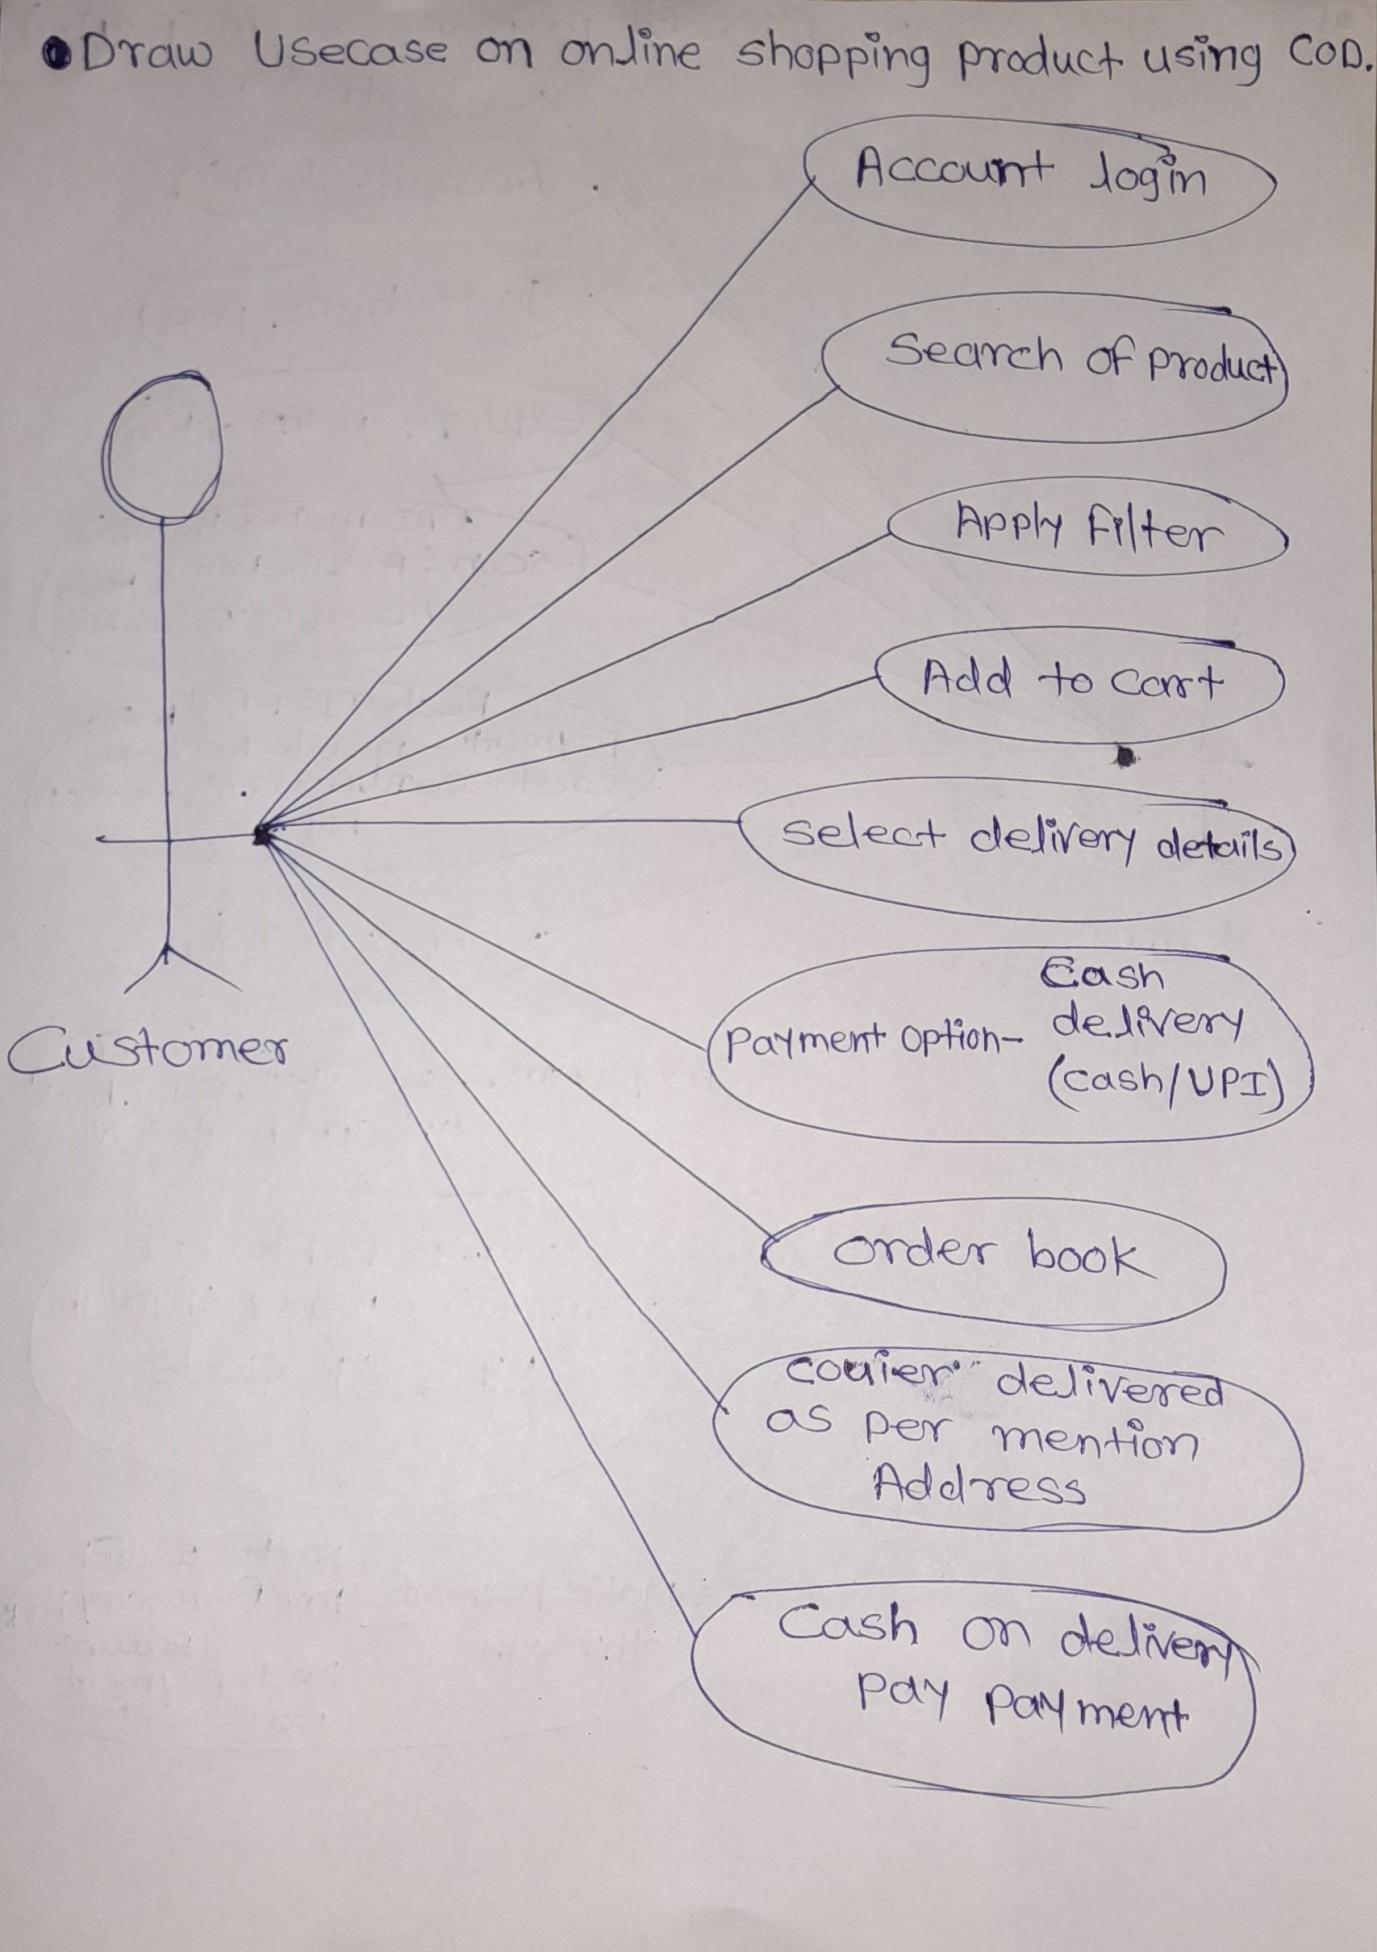 Draw Usecase on online shopping product using COD.
Account login
Search of product
Apply Filter
Add to cart
Select delivery details
Payment option- Cash
delivery
(cash/UPI)
order book
couier delivered
as per mention
Address
Cash on delivery
pay payment
Customer